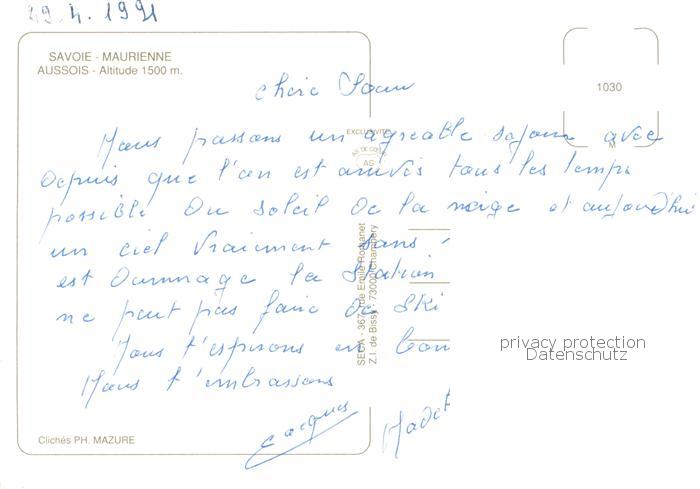 29.4.1991
SAVOIE - MAURIENNE
AUSSOIS - Altitude 1500 m.
1030
M
chère Soeur
EXCLUSIVITÉ
AS DE CŒUR
AS
Nous passons un agreable sejour avec
depuis que l'on est arrivés tous les temps
possible du soleil de la neige et aujourd'hui
un ciel vraiment sans
est dommage la station
ne peut pas faire de ski
Nous t'espérons en bon
Nous t'embrassons
SEGA - 367, rue Emile Romanet
Z.I. de Bissy - 73000 Chambéry
privacy protection
Datenschutz
Jacques
Clichés PH. MAZURE